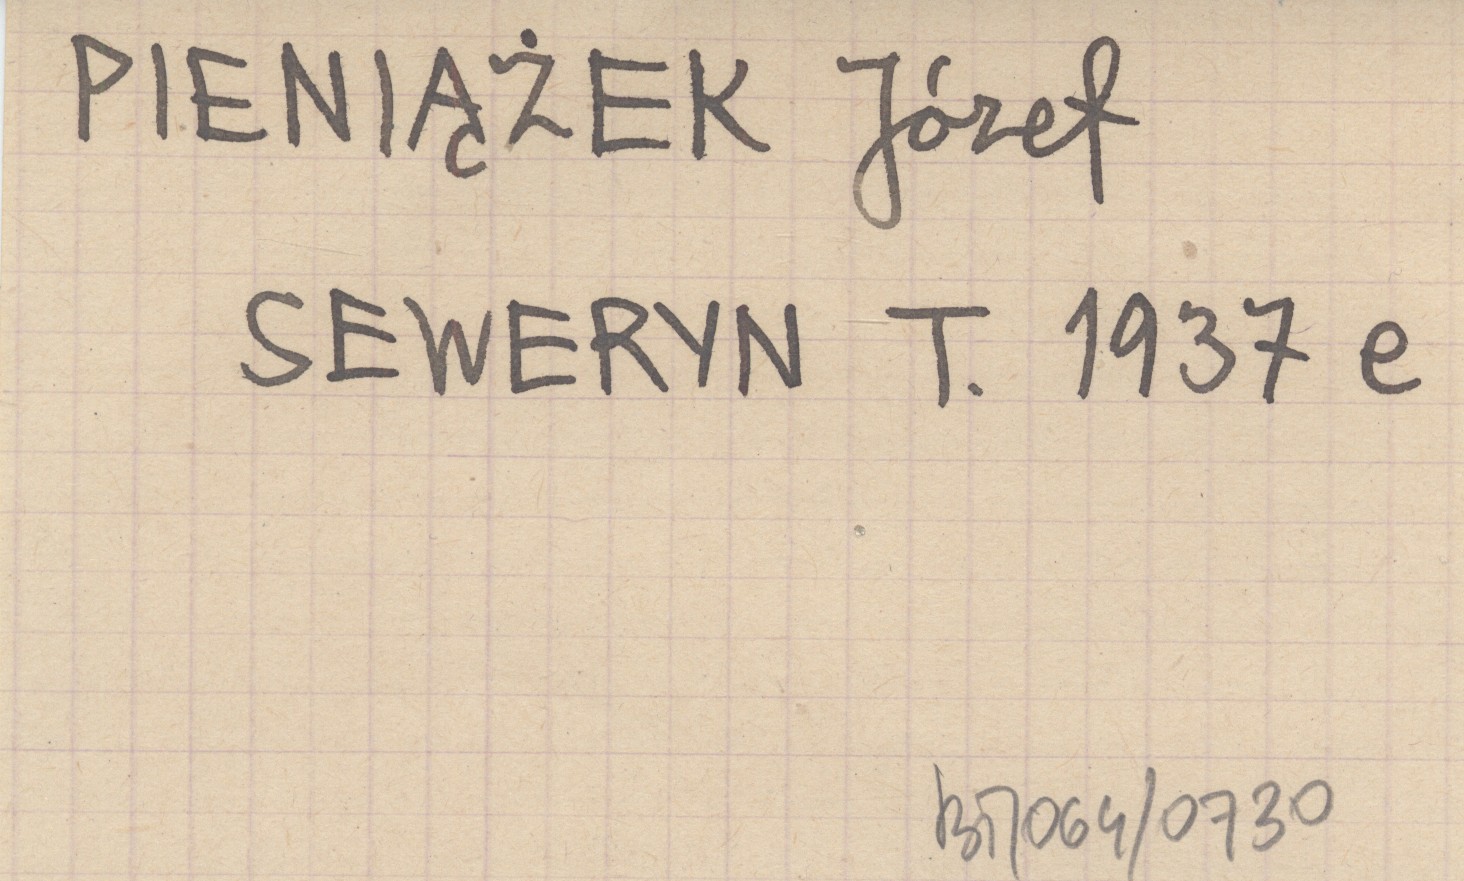 PIENIĄŻEK Józef
SEWERYN T. 1937 e
BT/064/0730